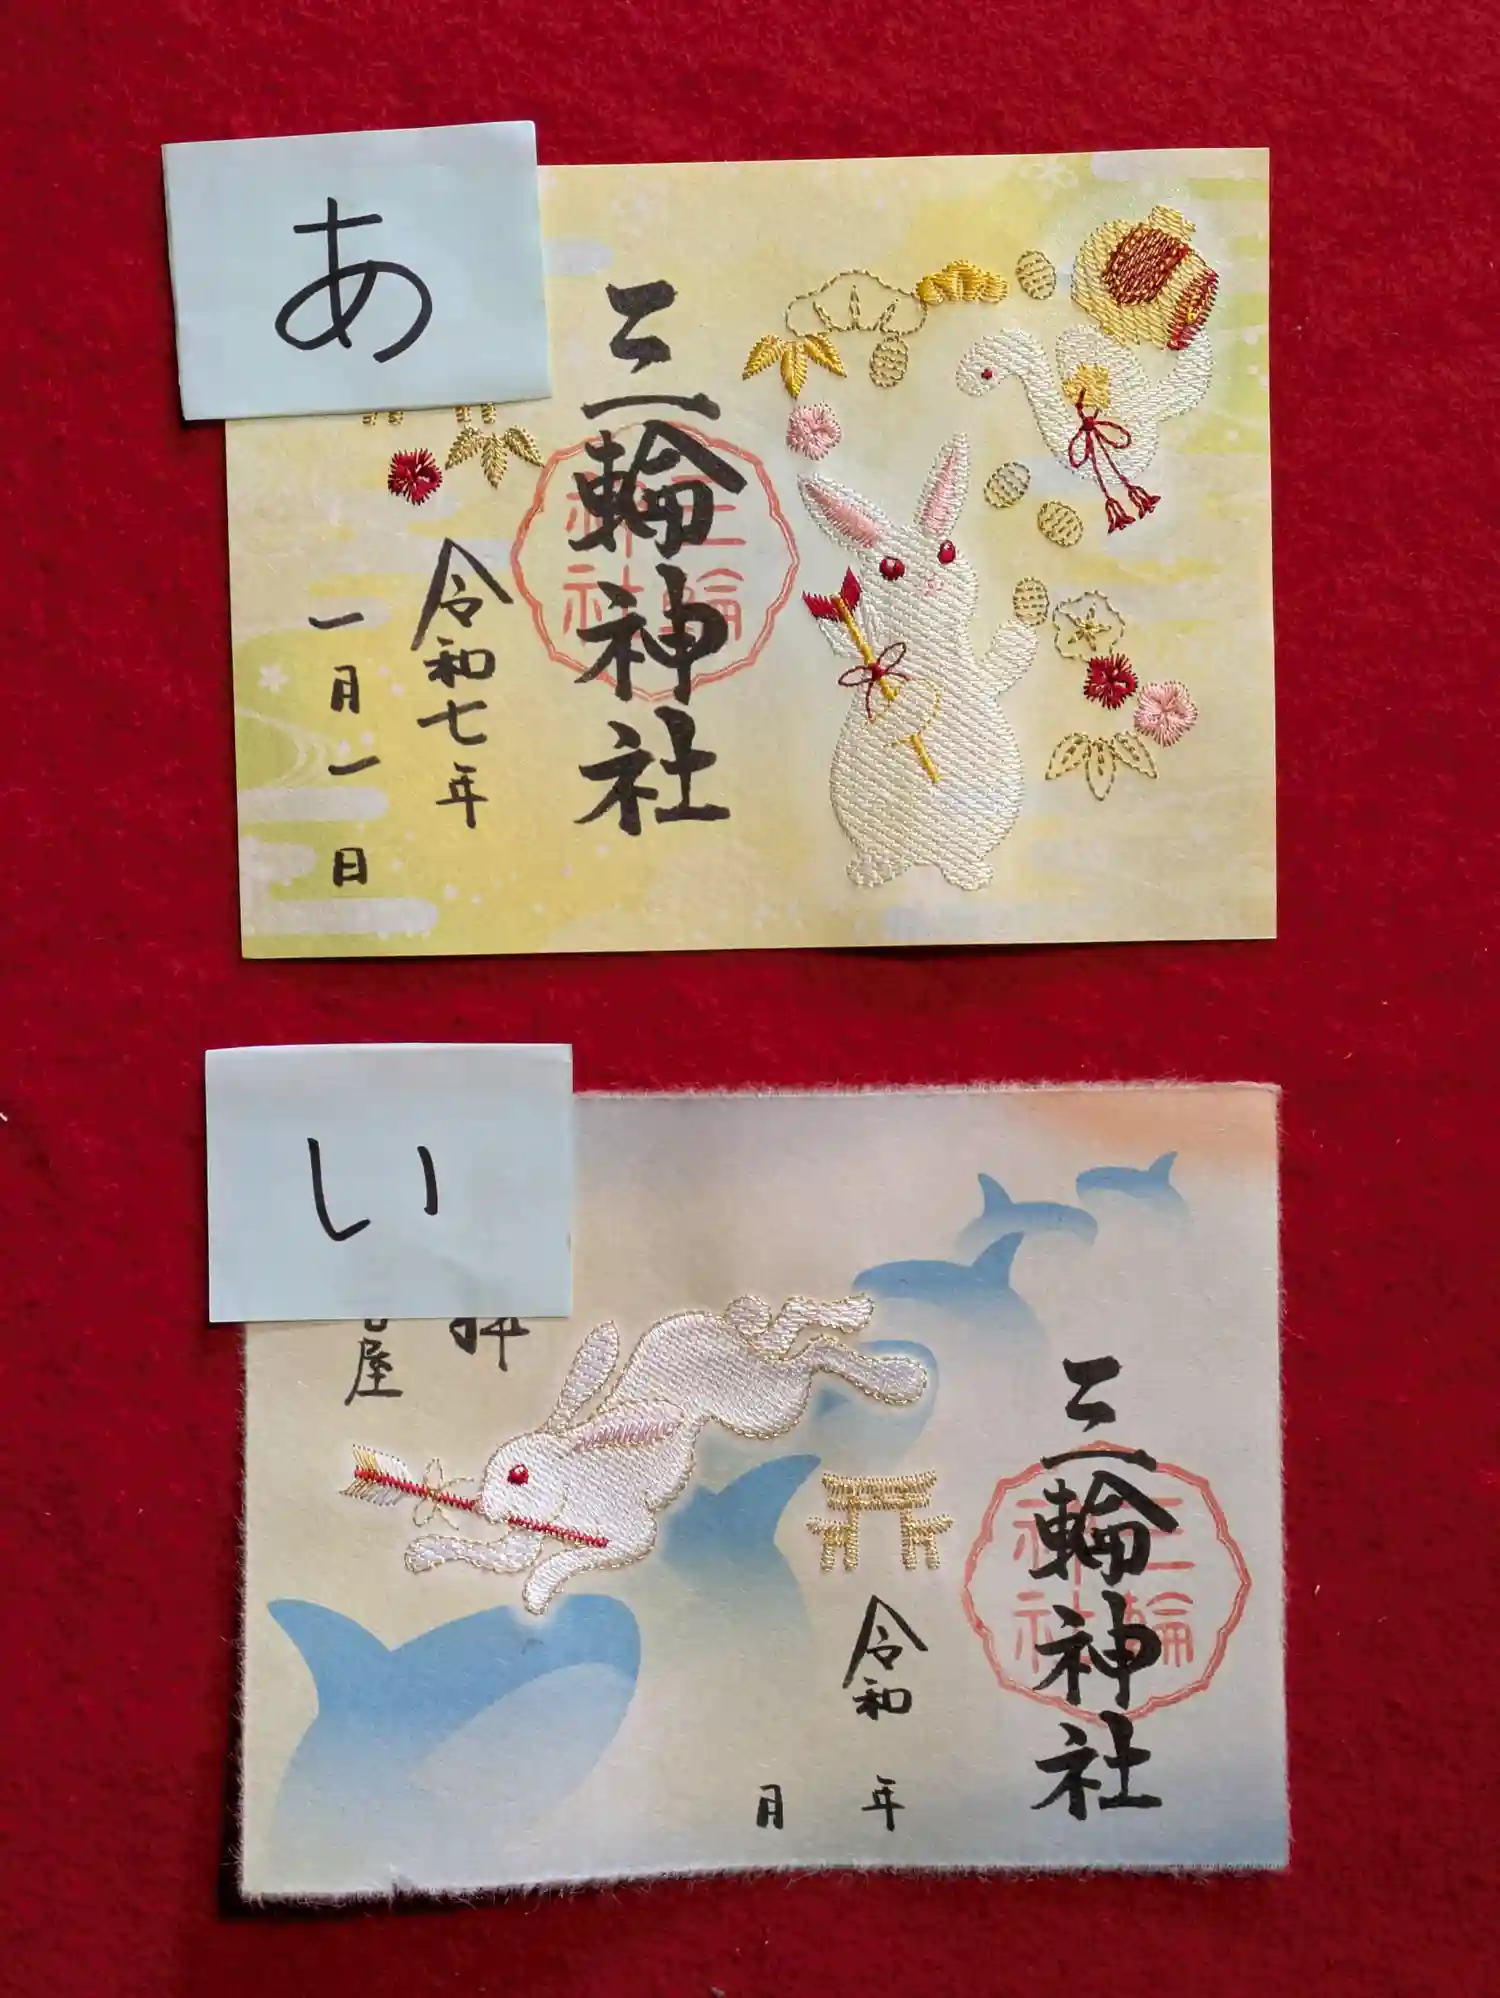 あ
三輪神社
三輪神社
令和七年
一月一日
い
三輪神社
三輪神社
令和 年
月
屋